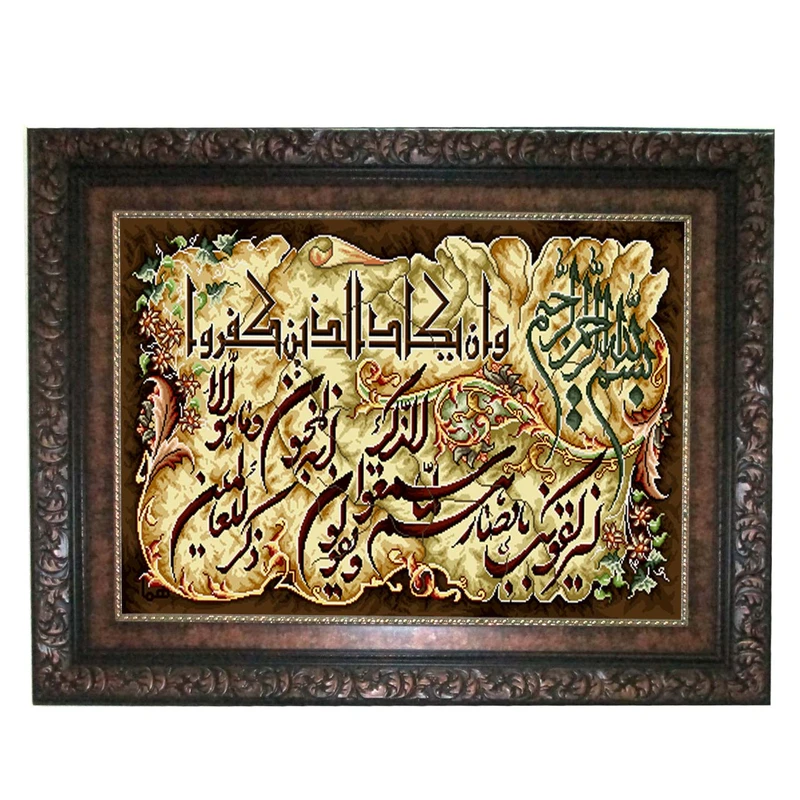 بسم الله الرحمن الرحیم
وان یکاد الذین کفروا
لیزلقونک بابصارهم لما سمعوا الذکر
ویقولون انه لمجنون وما هو الا
ذکر للعالمین
هما